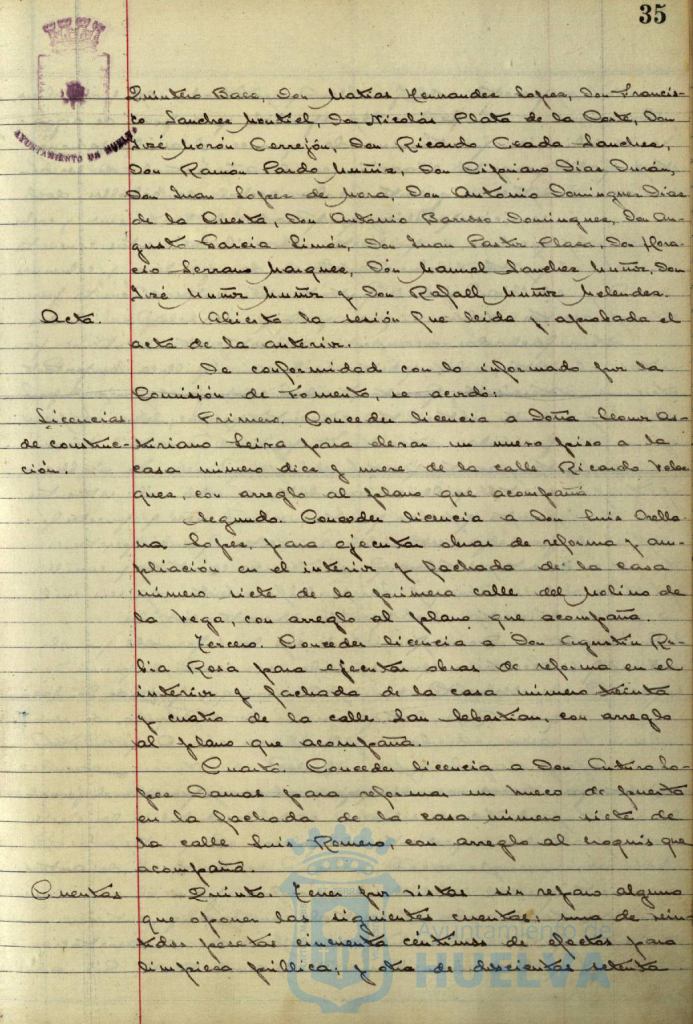 35
AYUNTAMIENTO DE HUELVA
Quintero Baez, Don Matias Hernandez Lopez, Don Francis-
co Sanchez Montiel, Don Nicolás Plata de la Corte, Don
José Morón Cerrejón, Don Ricardo Ceada Sanchez,
Don Ramón Pardo Muñiz, Don Cipriano Dias Durán,
Don Juan Lopez de Mora, Don Antonio Dominguez Dias
de la Cuesta, Don Antonio Barroso Dominguez, Don Au-
gusto Garcia Simón, Don Juan Pastor Plaza, Don Hora-
cio Serrano Marquez, Don Manuel Sanchez Muñoz, Don
José Muñoz Muñoz y Don Rafael Muñoz Melendez.
Acta.
Abierta la sesión fue leida y aprobada el
acta de la anterior.
De conformidad con lo informado por la
Comisión de Fomento, se acordó:
Licencias
de construc-
ción.
Primero. Conceder licencia a Doña Leonor As-
teriano para elevar un nuevo piso a la
casa número diez y nueve de la calle Ricardo Velaz
quez, con arreglo al plano que acompaña
Segundo. Conceder licencia a Don Luis Orella
na Lopez, para ejecutar obras de reforma y am-
pliación en el interior y fachada de la casa
número siete de la primera calle del Molino de
la Vega, con arreglo al plano que acompaña.
Tercero. Conceder licencia a Don Agustin Ru-
bia Rosa para ejecutar obras de reforma en el
interior y fachada de la casa número treinta
y cuatro de la calle San Sebastian, con arreglo
al plano que acompaña.
Cuarto. Conceder licencia a Don Arturo Lo-
pez Damas para reformar un hueco de puerta
en la fachada de la casa número siete de
la calle Luis Romero, con arreglo al croquis que
acompaña.
Cuentas
Quinto. Tener por vistas sin reparo alguno
que oponer las siguientes cuentas: una de vein-
tidos pesetas cincuenta céntimos de efectos para
limpieza pública; y otra de doscientas setenta
Ayuntamiento de
HUELVA